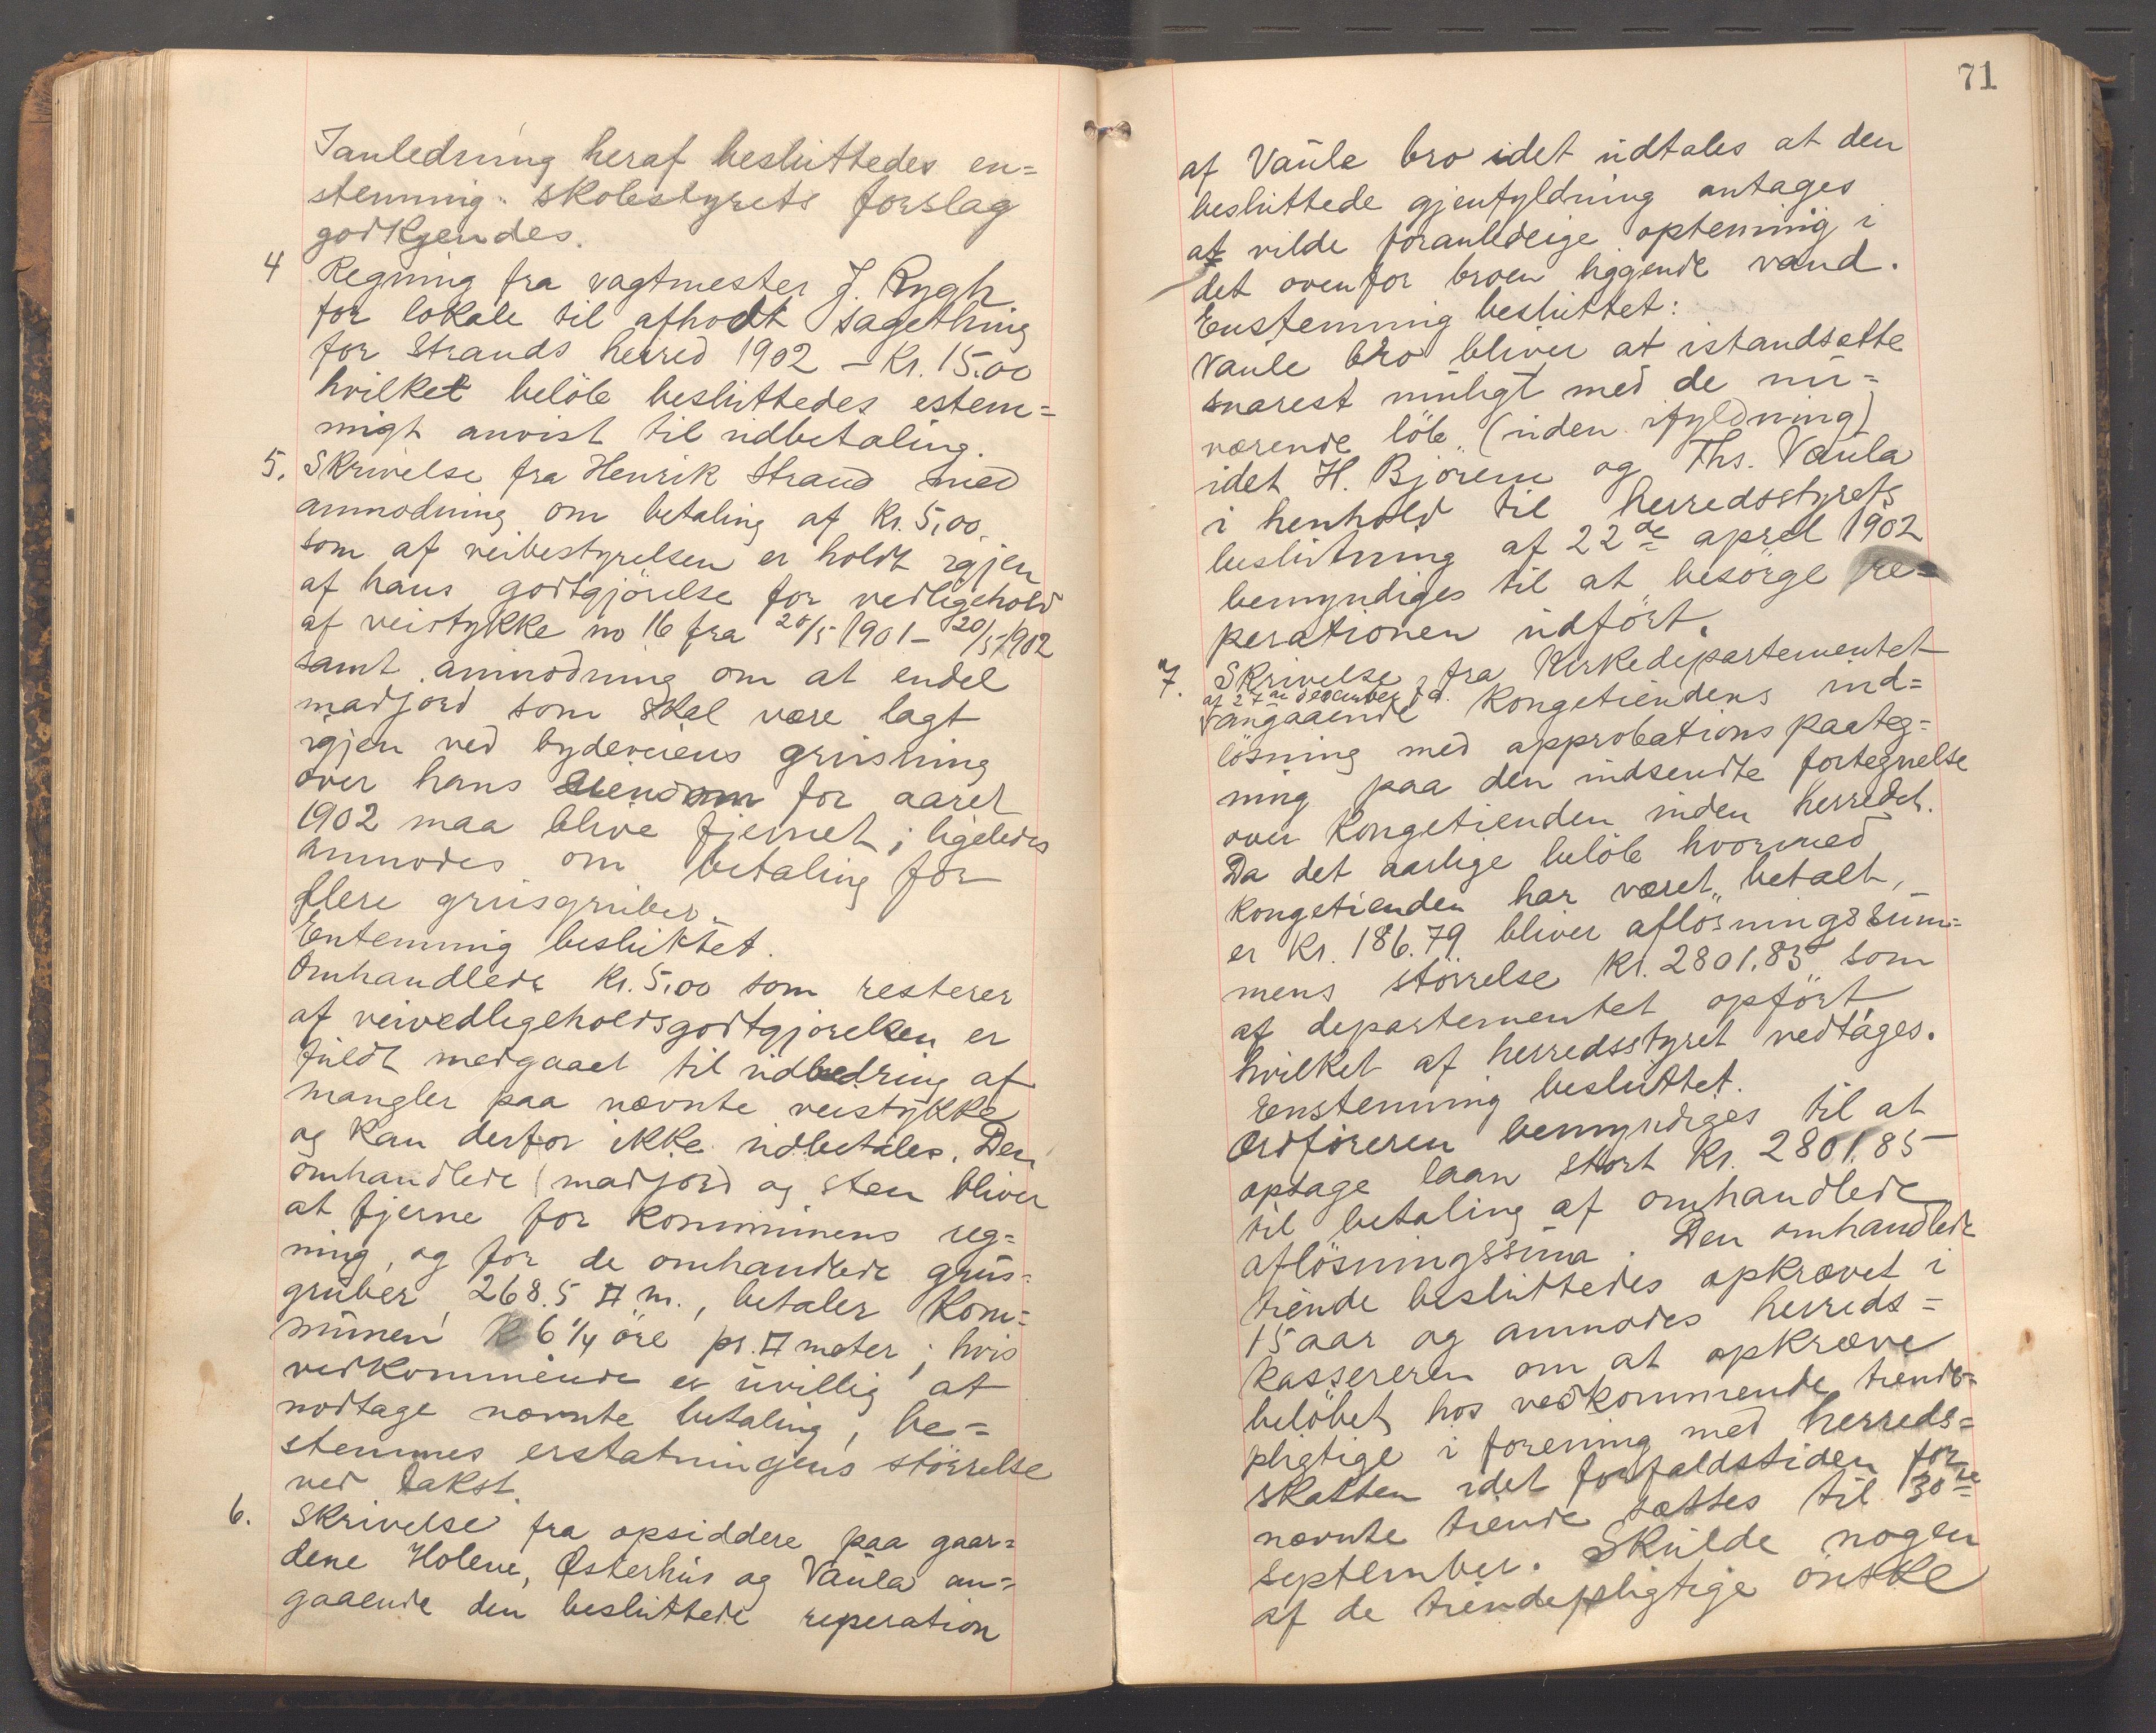 Ianledning heraf besluttedes en=
stemmig: skolestyrets forslag
godkjendes.
4 Regning fra vagtmester J. Rygh
for lokale til afhodt sagething
for Strands herred 1902 – Kr. 15.00
hvilket belöb besluttedes estem=
migt anvist til udbetaling.
5. Skrivelse fra Henrik Strand med
anmodning om betaling af Kr. 5,00
som af veibestyrelsen er holdt igjen
af hans godtgjörelse for vedligehold
af veistykke no 16 fra 20/5 1901 – 20/5 1902
samt anmodning om at endel
madjord som skal være lagt
igjen ved bydeveiens grusning
over hans eiendom for aaret
1902 maa blive fjernet; ligeledes
anmodes om betaling for
flere grusgruber.
Entemmig besluttet.
Omhandlede Kr. 5,00 som resterer
af veivedligeholdsgodtgjörelsen er
fuldt medgaaet til udbedring af
mangler paa nævnte veistykke
og kan derfor ikke udbetales. Den
omhandlede madjord og sten bliver
at fjerne for kommunens reg=
ning, og for de omhandlede grus=
gruber, 268.5 □ m., betaler kom=
munen 6 1/4 öre pr. □ meter; hvis
vedkommende er uvillig at
modtage nævnte betaling, be=
stemmes erstatningens störrelse
ved takst.
6. Skrivelse fra opsiddere paa gaar=
dene Holene, Østerhus og Vaula an=
gaaende den besluttede reperation
71
af Vaule bro idet udtales at den
besluttede gjenfyldning antages
at vilde foranledeige optemmig i
det ovenfor broen liggende vand.
Enstemmig besluttet:
Vaule bro bliver at istandsette
snarest muligt med de nu=
værende löb. (uden ifyldning)
idet H. Björeim og Ths. Vaula
i henhold til herredsstyrets
beslutning af 22de aprel 1902
bemyndiges til at besörge re=
perationen udfört.
7. Skrivelse fra Kirkedepartementet
af 27de december f.a.
angaaende kongetiendens ind=
lösning med approbations paateg=
ning paa den indsendte fortegnelse
over kongetienden inden herredet.
Da det aarlige belöb hvormed
kongetienden har været betalt,
er Kr. 186.79 bliver aflösningssum=
mens störrelse Kr. 2801.85 som
af departementet opfört
hvilket af herredsstyret vedtages.
Enstemmig besluttet.
Ordföreren bemyndiges til at
optage laan stort Kr. 2801.85
til betaling af omhandlede
aflösningssum. Den omhandlede
tiende besluttedes opkrævet i
15 aar og anmodes herreds=
kassereren om at opkræve
belöbet hos vedkommende tiende=
pligtige i forening med herreds=
skatten idet forfaldstiden for
nævnte tiende sættes til 30te
september. Skulde nogen
af de tiendepligtige önske